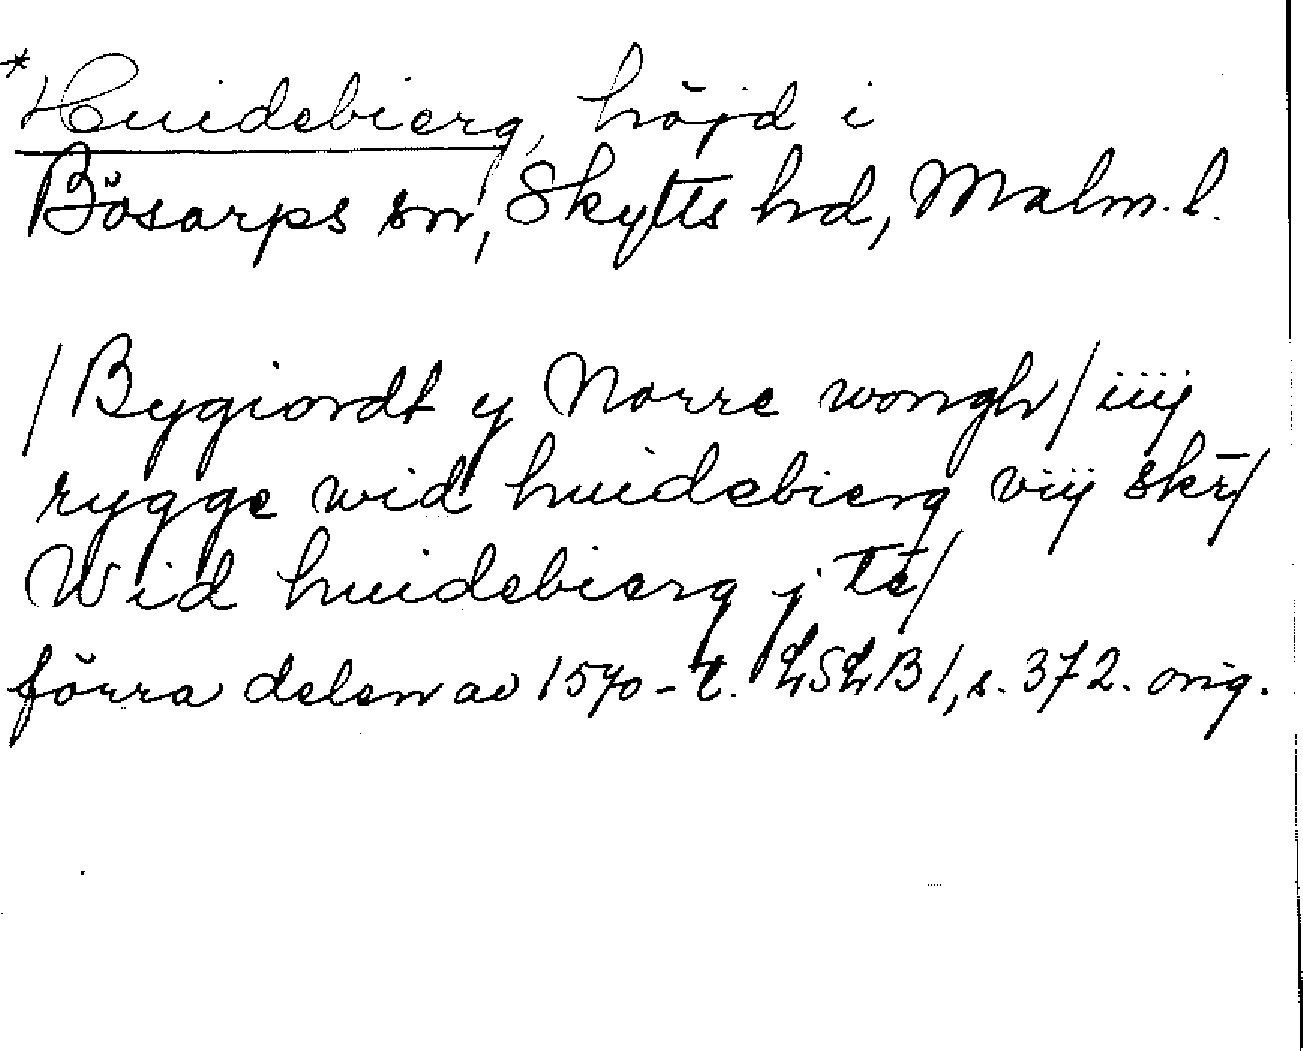 *Huidebierg, höjd i
Bösarps sn, Skytts hd, Malm. l.
/Bygiordt y Norre wongh/ iiij
rygge wid huidebierg viij skr/
Wid huidebierg j te/
förra delen av 1570-t. LSLB 1, s. 372. orig.